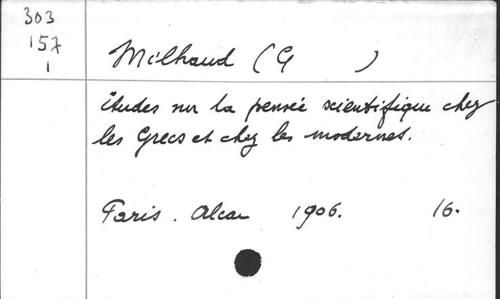 303
157
1
Milhaud (G )
études sur la pensée scientifique chez
les Grecs et chez les modernes.
Paris. Alcan 1906. 16.